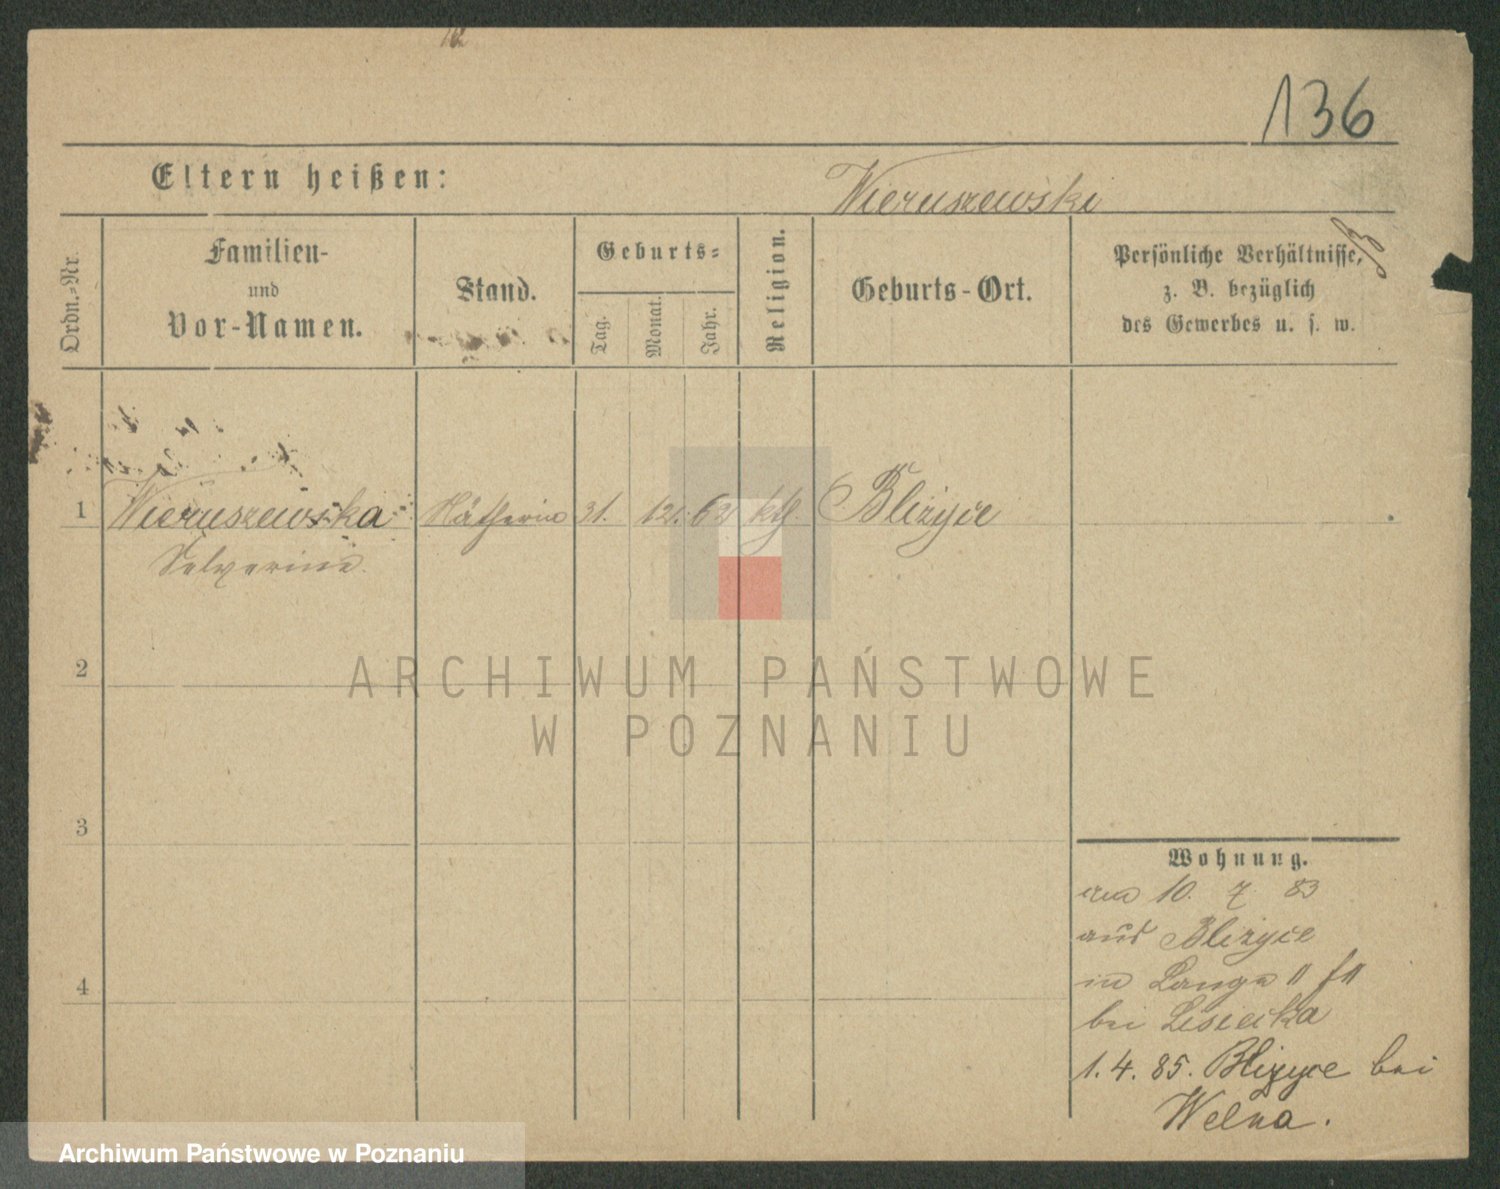 136
Eltern heißen: Wieruszewski
Ordn.-Nr.
Familien- und Vor-Namen.
Stand.
Geburts-
Tag.
Monat.
Jahr.
Religion.
Geburts-Ort.
Persönliche Verhältnisse,
z. B. bezüglich
des Gewerbes u. s. w.
1 Wieruszewska Nätherin 31. 12. 62 kth Bliżyce
2
3
4
Wohnung.
am 10. 7. 83
aus Bliżyce
in Lange 11
bei Lisiecka
1. 4. 85. Bliżyce bei
Welna.
ARCHIWUM PAŃSTWOWE
W POZNANIU
Archiwum Państwowe w Poznaniu